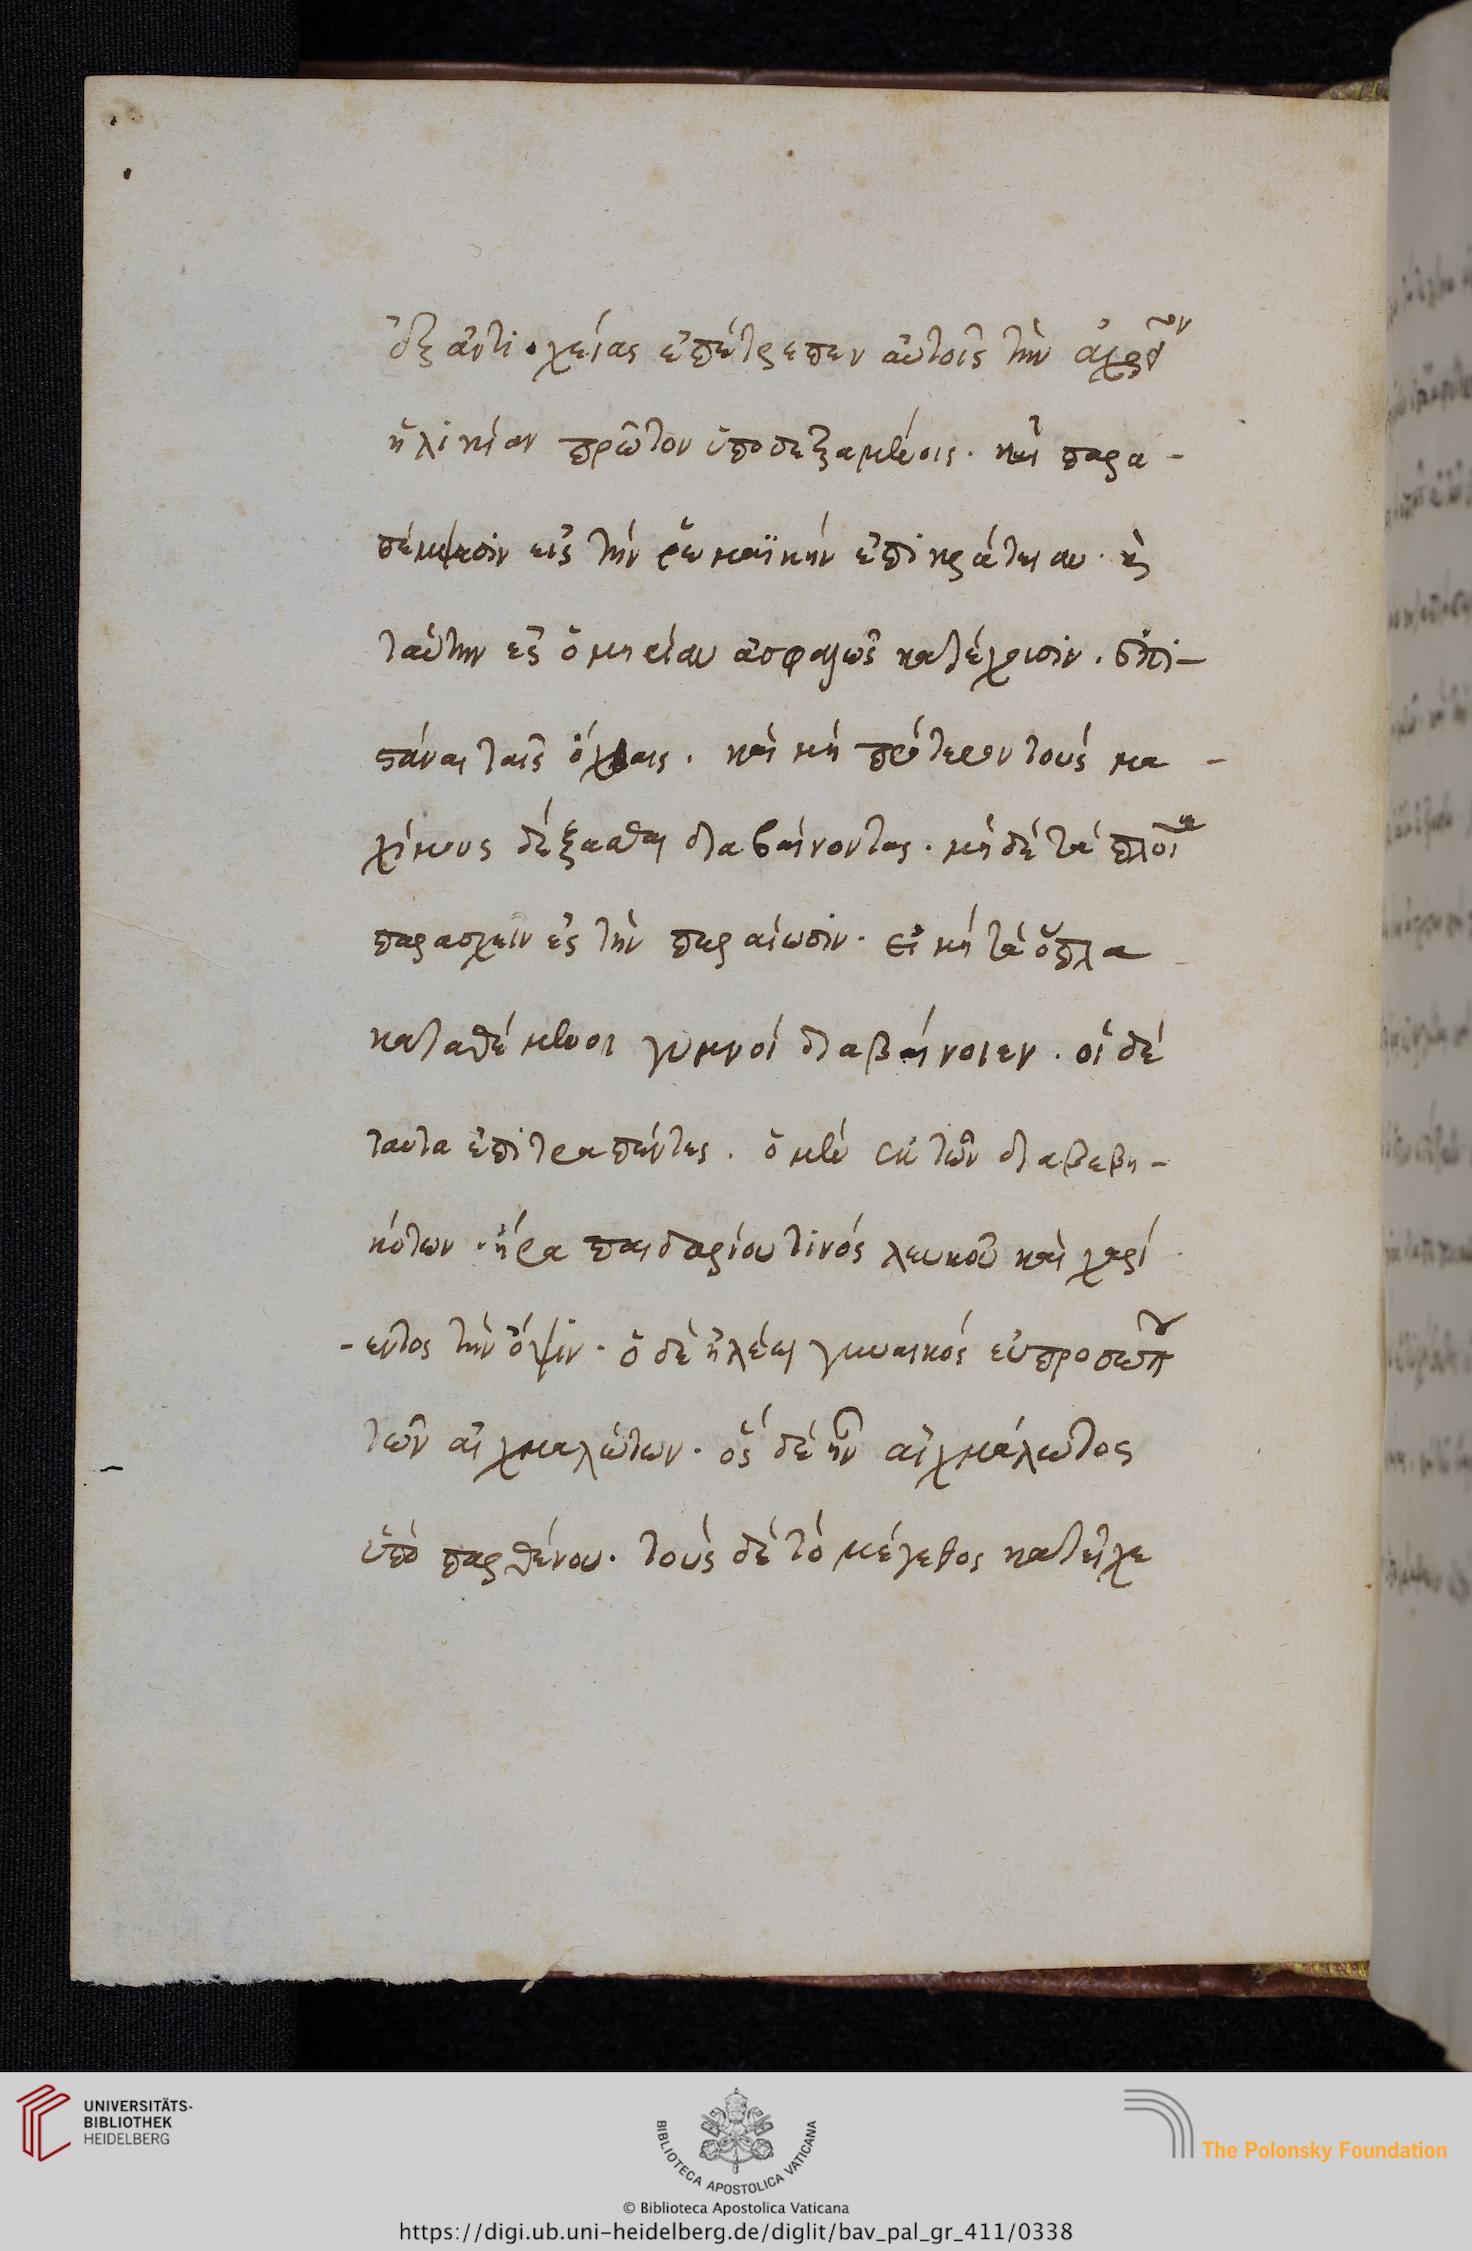 ἐξ ἀντιοχείας ἐπέτρεπεν αὐτοῖς τὴν ἀχρεῖον
ἡλικίαν πρῶτον ὑποδεξαμένοις. καὶ παρα-
πέμψασιν εἰς τὴν ῥωμαϊκὴν ἐπικράτειαν. καὶ
ταύτην ἐς ὁμηρίαν ἀσφαλῶς κατέχουσιν. ἐπι-
στάναι ταῖς ὄχθαις. καὶ μὴ πρότερον τοὺς μα-
χίμους δέξασθαι διαβαίνοντας. μηδὲ τὰ πλοῖα
παρασχεῖν ἐς τὴν περαίωσιν. εἰ μὴ τὰ ὅπλα
καταθέμενοι γυμνοὶ διαβαίνοιεν. οἱ δὲ
ταυτα ἐπιτραπέντες. ὁ μὲν ἐκ τῶν διαβεβη-
κότων. ἤρα παιδαρίου τινὸς λευκοῦ καὶ χαρί
-εντος τὴν ὄψιν. ὁ δὲ ἡλέω γυναικὸς εὐπροσώπου
τῶν αἰχμαλώτων. ὃς δὲ ἦν αἰχμάλωτος
ὑπὸ παρθένου. τοὺς δὲ τὸ μέγεθος κατεῖχε
UNIVERSITÄTS-
BIBLIOTHEK
HEIDELBERG
BIBLIOTECA APOSTOLICA VATICANA
© Biblioteca Apostolica Vaticana
The Polonsky Foundation
https://digi.ub.uni-heidelberg.de/diglit/bav_pal_gr_411/0338